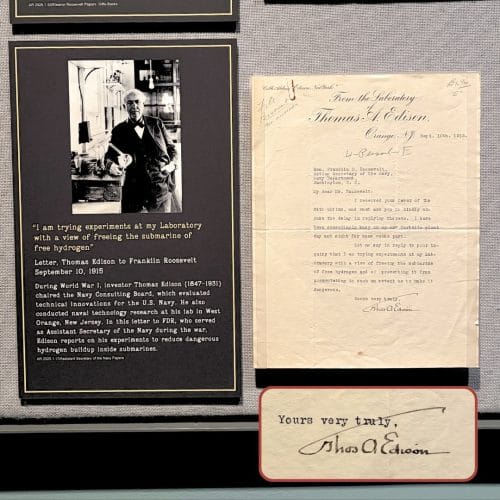 "I am trying experiments at my Laboratory
with a view of freeing the submarine of
free hydrogen"
Letter, Thomas Edison to Franklin Roosevelt
September 10, 1915
During World War I, inventor Thomas Edison (1847-1931)
chaired the Navy Consulting Board, which evaluated
technical innovations for the U.S. Navy. He also
conducted naval technology research at his lab in West
Orange, New Jersey. In this letter to FDR, who served
as Assistant Secretary of the Navy during the war,
Edison reports on his experiments to reduce dangerous
hydrogen buildup inside submarines.
From the Laboratory
of
Thomas A. Edison,
Orange, N.J. Sept. 10th, 1915.
Hon. Franklin D. Roosevelt,
Acting Secretary of the Navy,
Navy Department,
Washington, D. C.
My dear Mr. Roosevelt:
I received your favor of the
and
day and night for some weeks past.
Let me say in reply to your
that I am trying experiments at my
with a view of freeing the submarine
of free hydrogen and of preventing it from
to such an extent as to make it
dangerous.
Yours very truly,
Thos A Edison
Yours very truly,
Thos A Edison